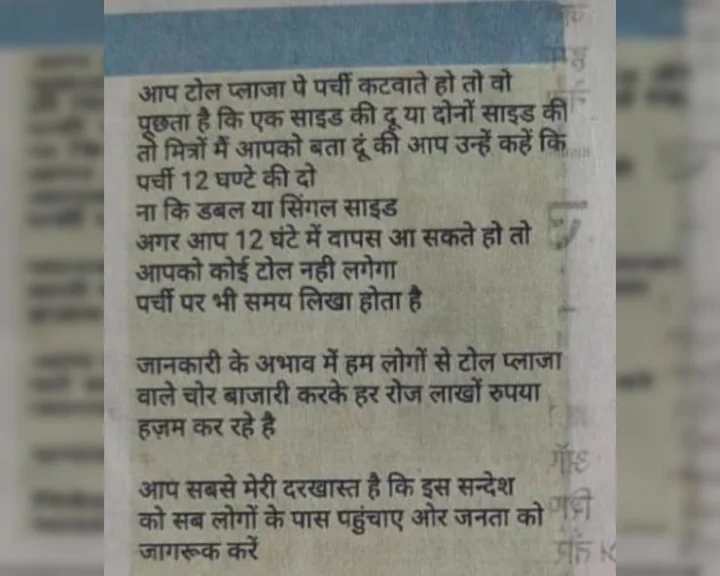 आप टोल प्लाजा पे पर्ची कटवाते हो तो वो
पूछता है कि एक साइड की दू या दोनों साइड की
तो मित्रों मैं आपको बता दूं की आप उन्हें कहें कि
पर्ची 12 घण्टे की दो
ना कि डबल या सिंगल साइड
अगर आप 12 घंटे में वापस आ सकते हो तो
आपको कोई टोल नही लगेगा
पर्ची पर भी समय लिखा होता है
जानकारी के अभाव में हम लोगों से टोल प्लाजा
वाले चोर बाजारी करके हर रोज लाखों रुपया
हज़म कर रहे है
आप सबसे मेरी दरखास्त है कि इस सन्देश
को सब लोगों के पास पहुंचाए ओर जनता को
जागरूक करें